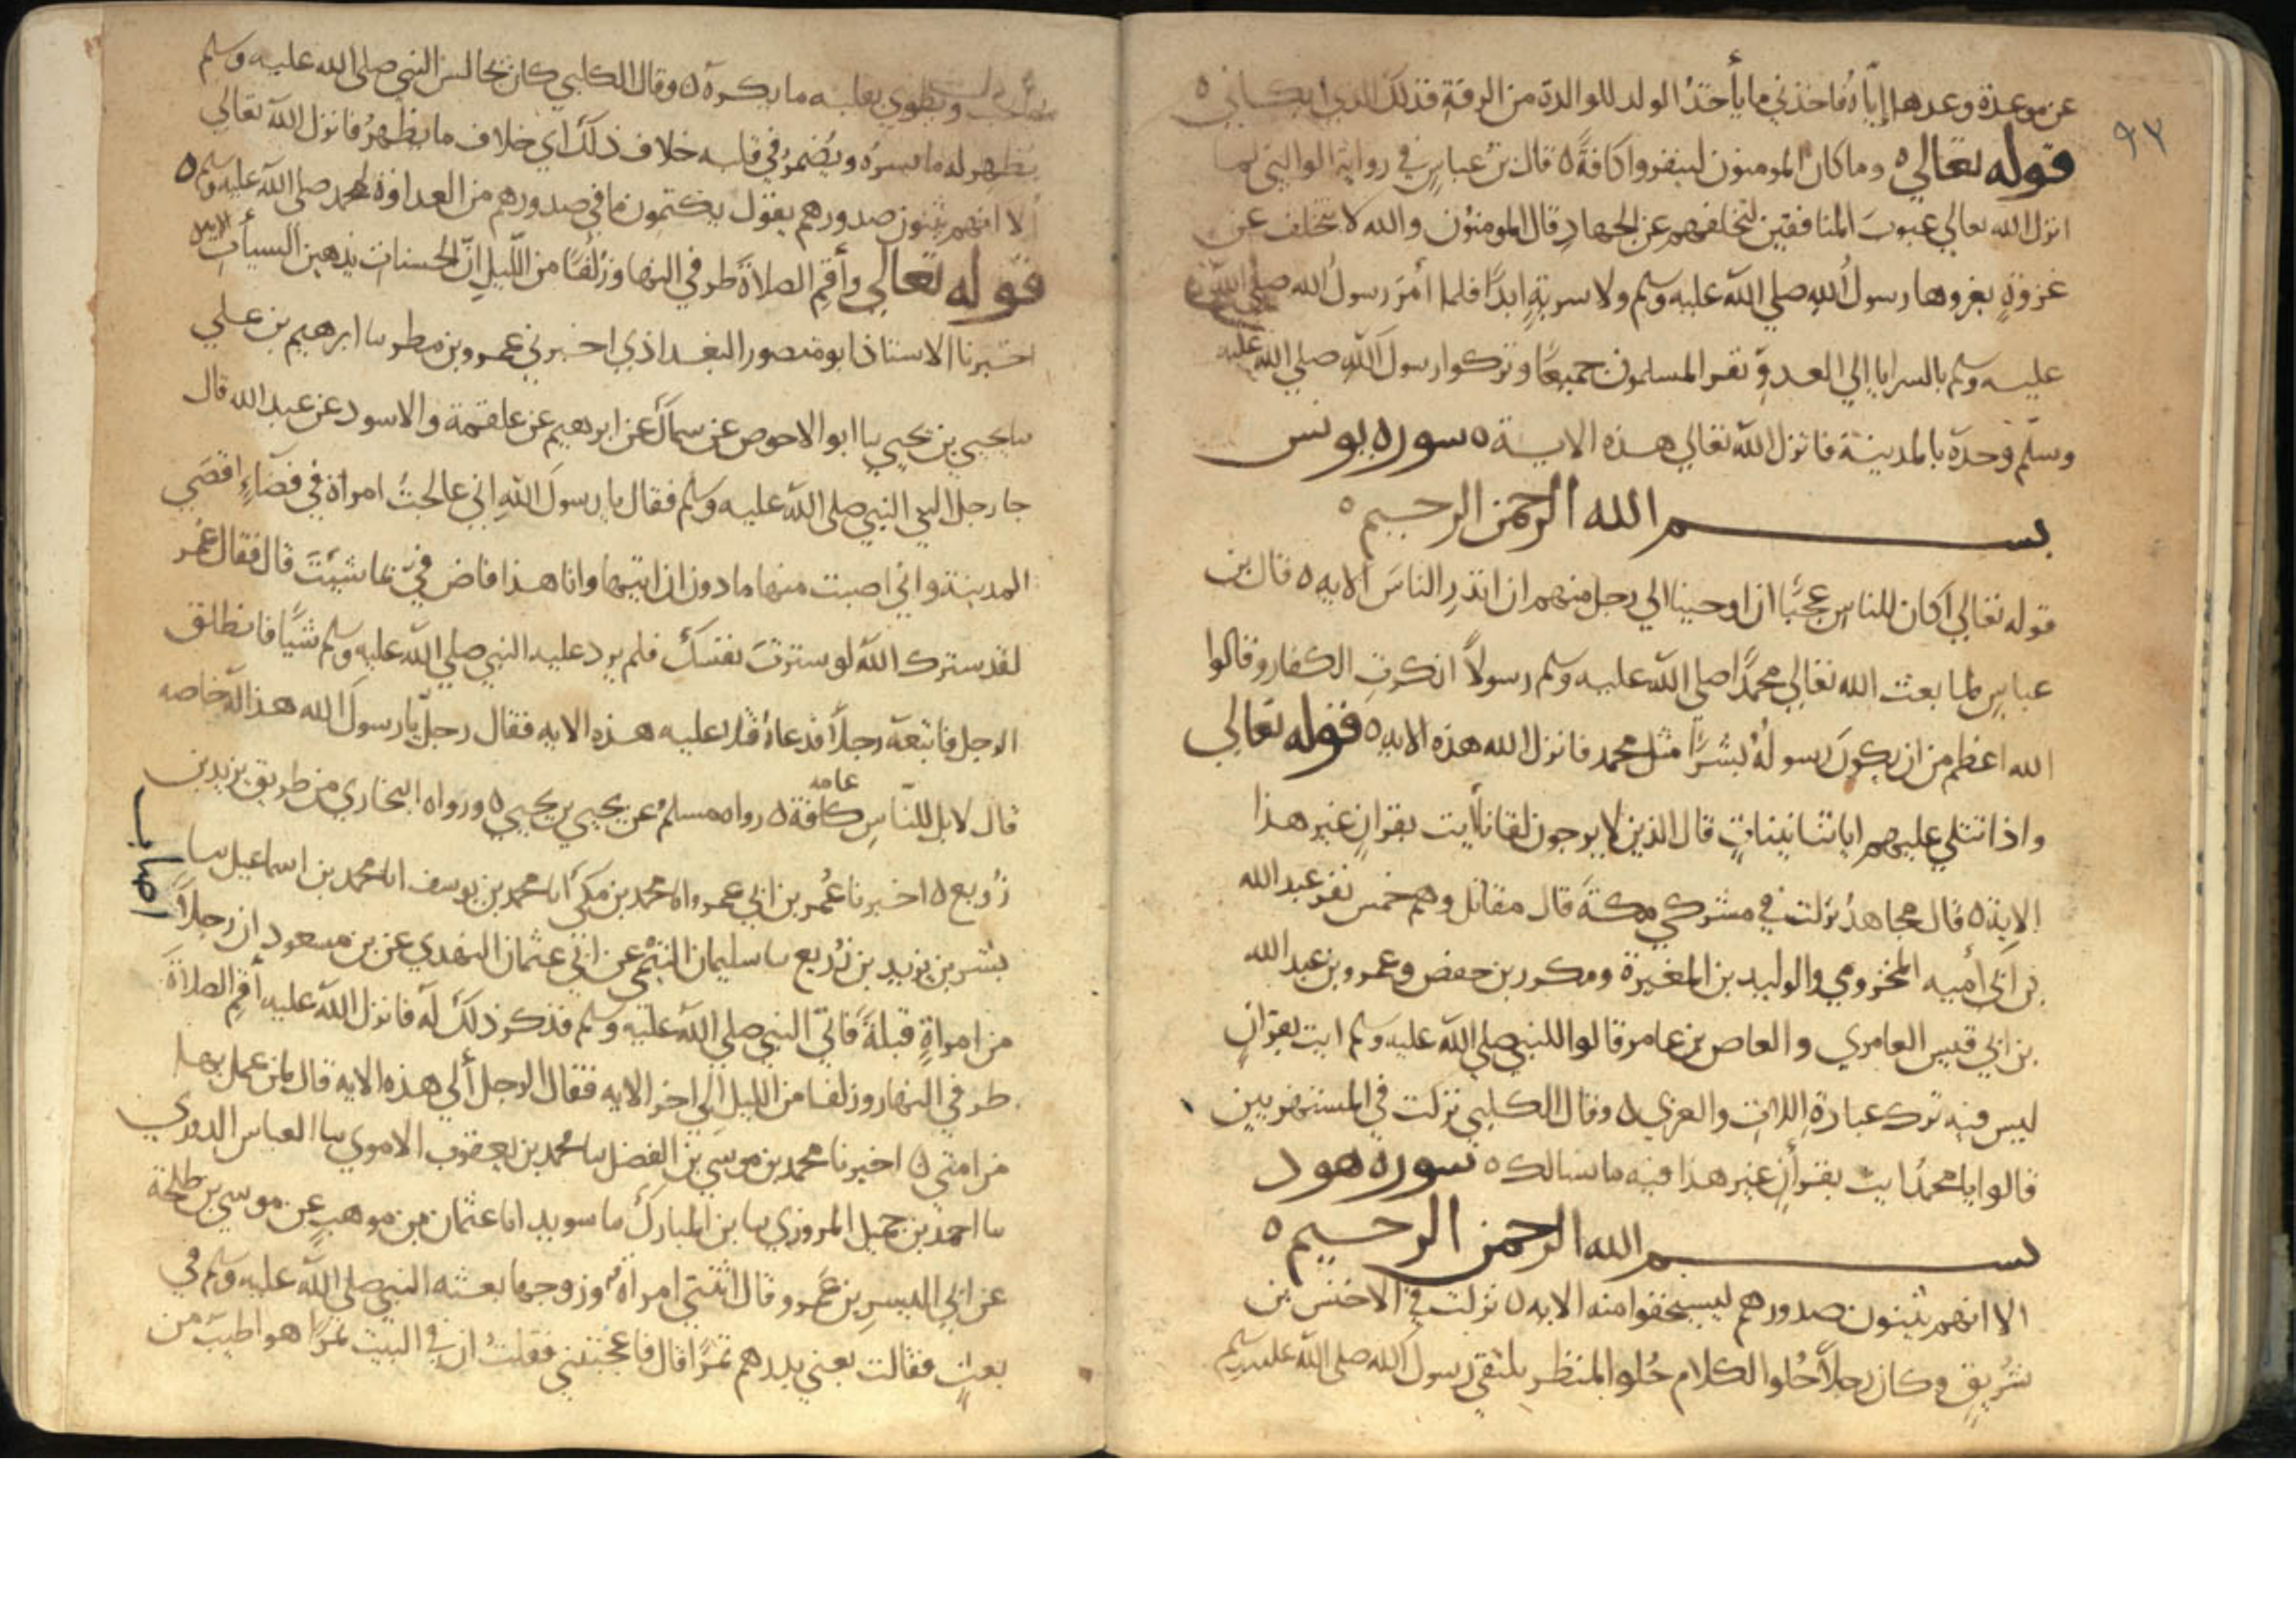 ٩٢
عن موعدة وعدها إياه فاخذني ما يأخذ الولد للوالدة من الرقة فذلك الذي ابكاني ه
قوله تعالى ه وما كان المومنون لينفروا كافة ه قال بن عباس في رواية الوالبي لما
انزل الله تعالى عيوب المنافقين لتخلفهم عن الجهاد قال المومنون والله لا نتخلف عن
غزوة يغزوها رسول الله صلى الله عليه وسلم ولا سرية ابدا فلما أمر رسول الله صلى الله
عليه وسلم بالسرايا إلى العدو نفر المسلمون جميعا وتركوا رسول الله صلى الله عليه
وسلم وحده بالمدينة فانزل الله تعالى هذه الاية ه سورة يونس
بسم الله الرحمن الرحيم ه
قوله تعالى اكان للناس عجبا ان اوحينا الى رجل منهم ان انذر الناس الايه ه قال بن
عباس لما بعث الله تعالى محمدا صلى الله عليه وسلم رسولا انكرت الكفار وقالوا
الله اعظم من ان يكون رسوله بشرا مثل محمد فانزل الله هذه الايه ه قوله تعالى
واذا تتلى عليهم اياتنا بينات قال الذين لا يرجون لقانا أيت بقران غير هذا
الاية ه قال مجاهد نزلت في مشركي مكة قال مقاتل وهم خمس نفر عبد الله
بن أبي أميه المخزومي والوليد بن المغيرة ومكرر بن حفص وعمرو بن عبد الله
بن ابي قيس العامري والعاص بن عامر قالوا للنبي صلى الله عليه وسلم ايت بقران
ليس فيه ترك عبادة اللات والعزى ه وقال الكلبي نزلت في المستهزيين
قالوا يا محمد ايت بقرأن غير هذا فيه ما نسالك ه سورة هود
بسم الله الرحمن الرحيم ه
الا انهم يثنون صدورهم ليستخفوا منه الايه ه نزلت في الاخنس بن
شريق وكان رجلا حلو الكلام حلو المنظر يلتقي رسول الله صلى الله عليه وسلم
بما يحب ويطوي بقلبه ما يكره ه وقال الكلبي كان يجالس النبي صلى الله عليه وسلم
يظهر له ما يسره ويضمر في قلبه خلاف ذلك اي خلاف ما يظهر فانزل الله تعالى
ألا انهم يثنون صدورهم يقول يكتمون ما في صدورهم من العداوة لمحمد صلى الله عليه وسلم ه
قوله تعالى وأقم الصلاة طرفي النها وزلفا من الليل إن الحسنات يذهبن السيأت الايه
اخبرنا الاستاذ ابو منصور البغداذي اخبرني عمرو بن مطر سا ابرهيم بن علي
سا يحيى بن يحيى سا ابو الاحوص عن سماك عن ابرهيم عن علقمة والاسود عن عبد الله قال
جا رجل الى النبي صلى الله عليه وسلم فقال يا رسول الله اني عالجت امراة في قضاء اقصى
المدينة واني اصبت منها ما دون ان اتيها وانا هذا فاض في ما شيت قال فقال عمر
لقد سترك الله لو سترت نفسك فلم يرد عليه النبي صلى الله عليه وسلم شيا فانطلق
الرجل فاتبعه رجلا فدعاه فتلا عليه هذه الايه فقال رجل يا رسول الله هذا له خاصه
قال لا بل للناس كافة عامه ه رواه مسلم عن يحيى بن يحيى ه ورواه البخاري من طريق يزيد بن
زريع ه اخبرنا عمر بن ابي عمرو انا محمد بن مكي انا محمد بن يوسف انا محمد بن اسماعيل سا
بشر بن يزيد بن زريع سا سليمان التيمي عن ابي عثمان النهدي عن بن مسعود ان رجلا
اصاب
من امراة قبلة فاتى النبي صلى الله عليه وسلم فذكر ذلك له فانزل الله عليه أقم الصلاة
طرفي النهار وزلفا من الليل الى اخر الايه فقال الرجل ألي هذه الايه قال لمن عمل بها
من امتي ه اخبرنا محمد بن موسى بن الفضل سا محمد بن يعقوب الاموي سا العباس الدوري
سا احمد بن حميل المروزي سا بن المبارك سا سويد انا عثمان بن موهب عن موسى بن طلحة
عن ابي اليسر بن عمرو قال اتتني امراة وزوجها بعثه النبي صلى الله عليه وسلم في
بعث فقالت بعني بدرهم تمرا قال فاعجبتني فقلت ان في البيت تمرا هو اطيب من